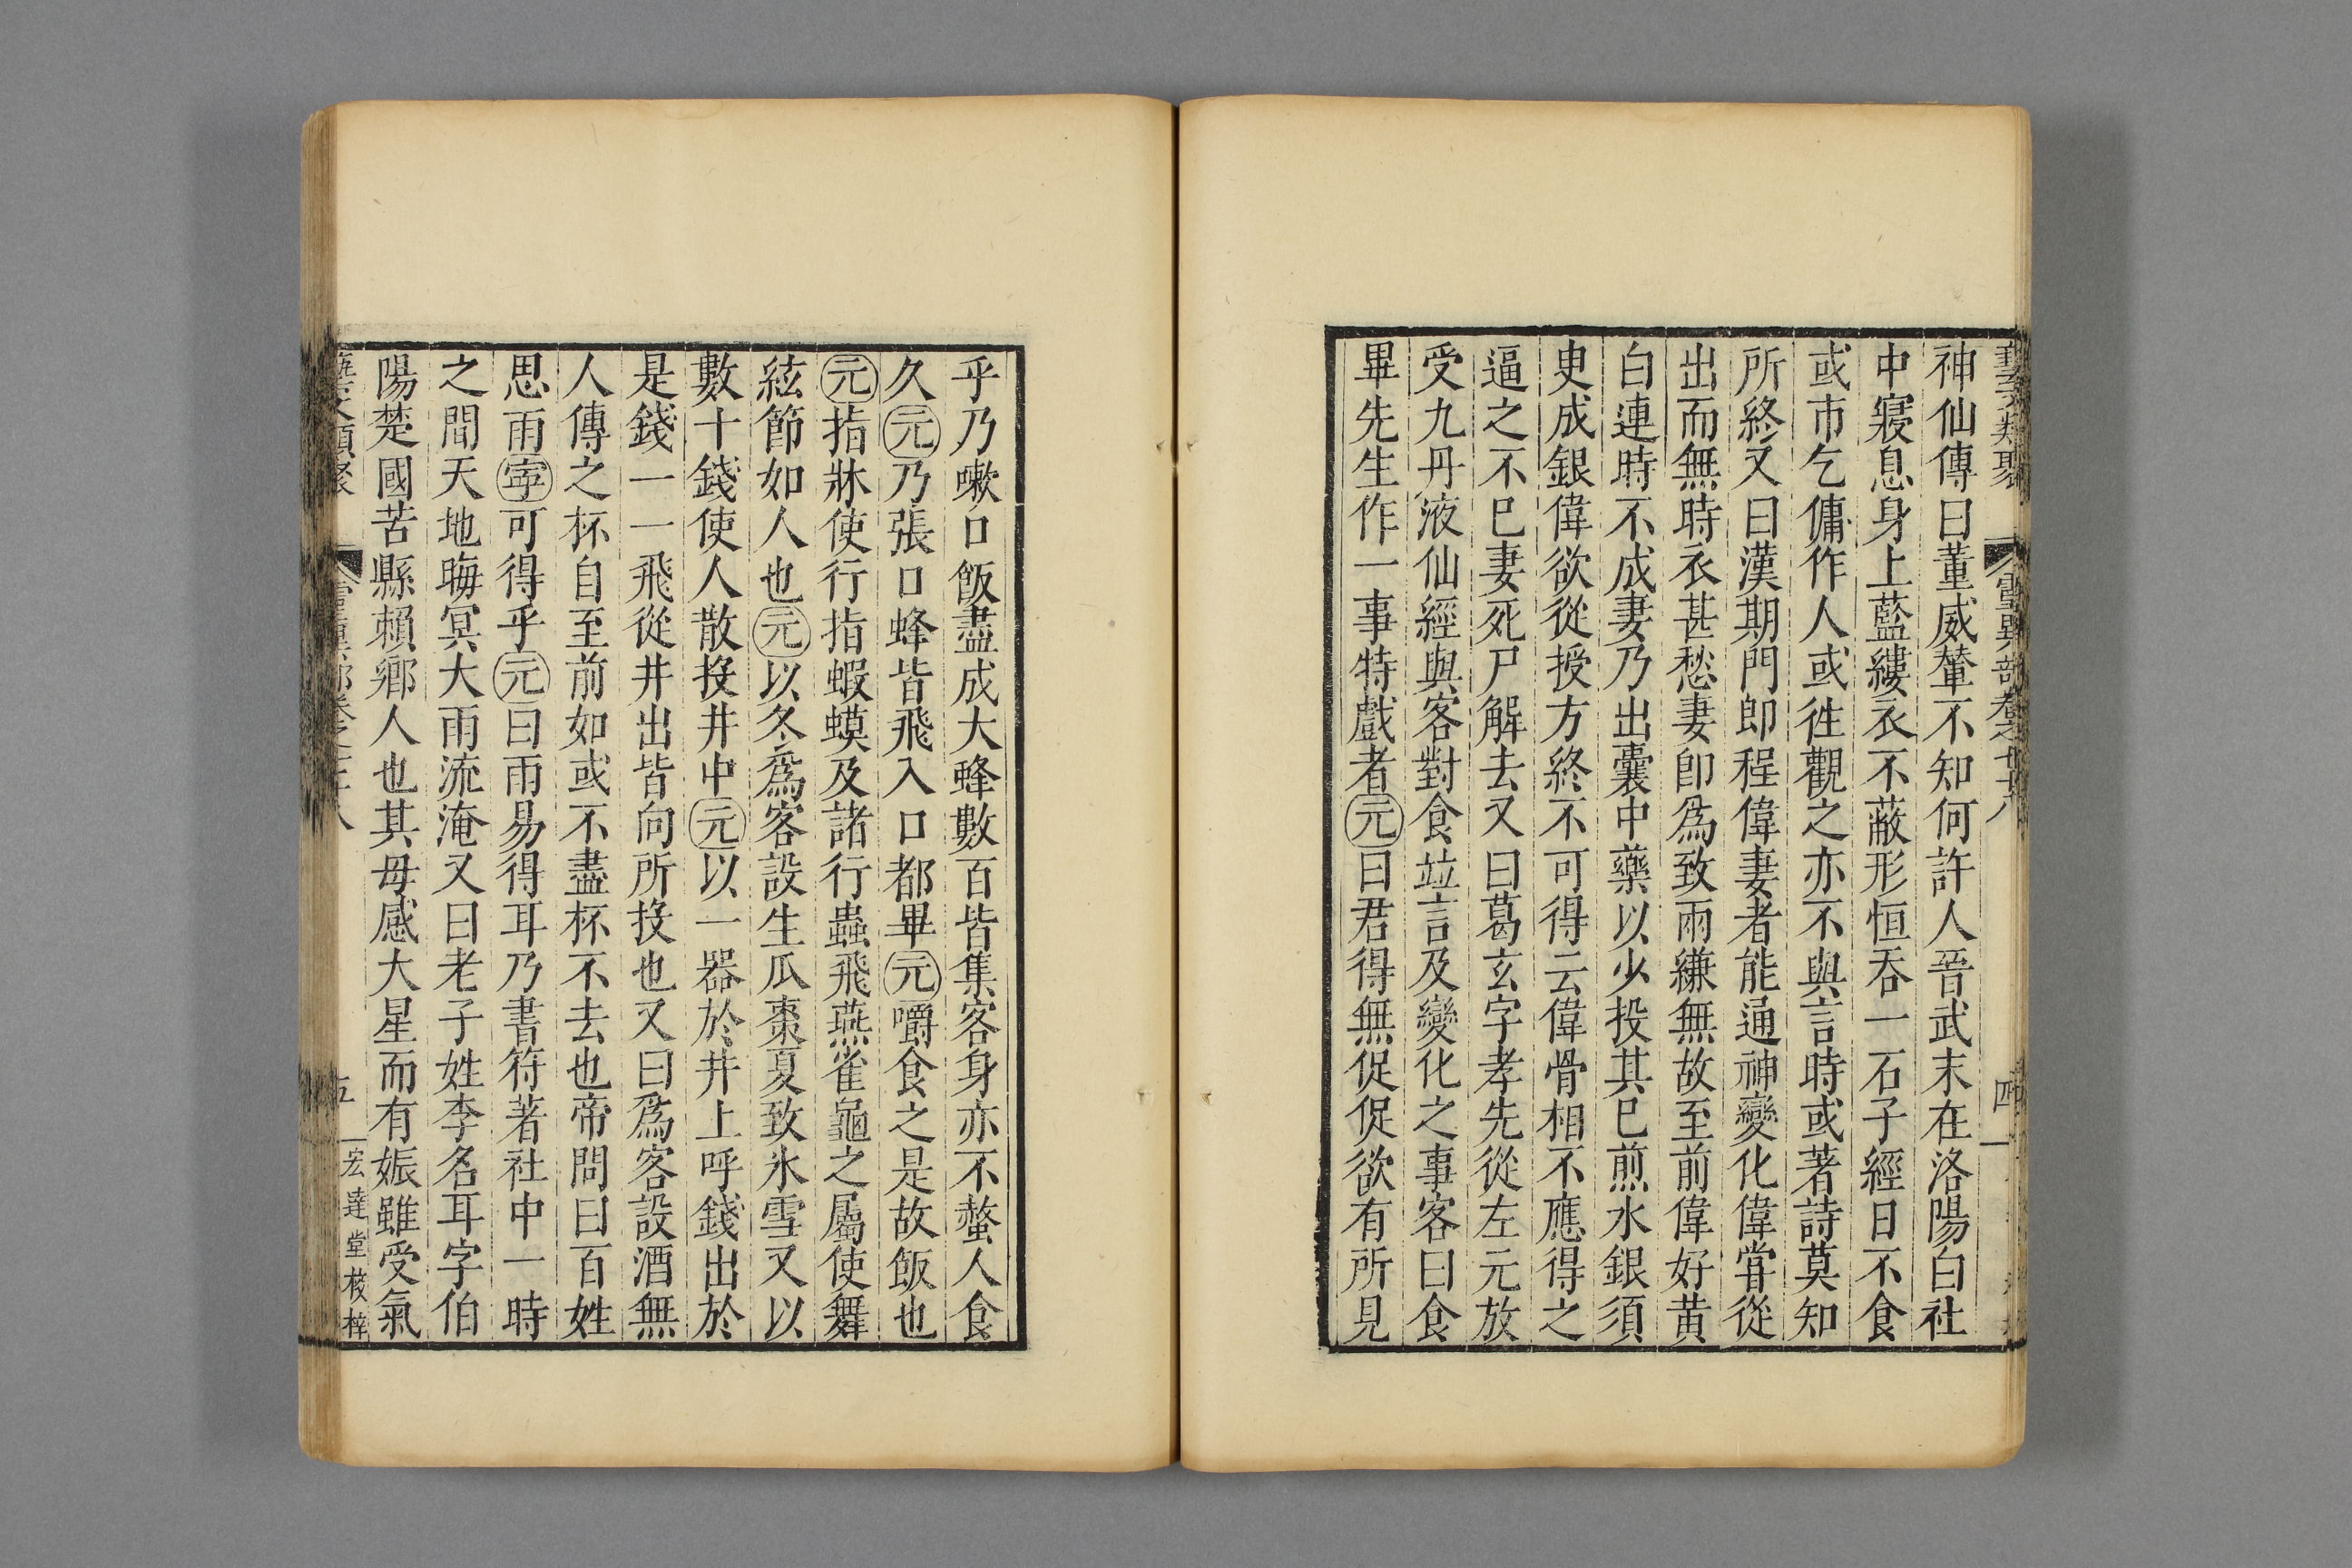 藝文類聚 靈異部卷之七十八 四
神仙傳曰董威輦不知何許人晉武末在洛陽白社
中寢息身上藍縷衣不蔽形恒吞一石子經日不食
或市乞傭作人或徃觀之亦不與言時或著詩莫知
所終又曰漢期門郎程偉妻者能通神變化偉甞從
出而無時衣甚愁妻卽爲致兩縑無故至前偉好黄
白連時不成妻乃出囊中藥以少投其已煎水銀須
臾成銀偉欲從授方終不可得云偉骨相不應得之
逼之不已妻死尸解去又曰葛玄字孝先從左元放
受九丹液仙經與客對食竝言及變化之事客曰食
畢先生作一事特戲者元曰君得無促促欲有所見
乎乃嗽口飯盡成大蜂數百皆集客身亦不螫人食
久元乃張口蜂皆飛入口都畢元嚼食之是故飯也
元指牀使行指蝦蟆及諸行蟲飛燕雀龜之屬使舞
絃節如人也元以冬爲客設生瓜棗夏致氷雪又以
數十錢使人散投井中元以一器於井上呼錢出於
是錢一一飛從井出皆向所投也又曰爲客設酒無
人傳之杯自至前如或不盡杯不去也帝問曰百姓
思雨寧可得乎元曰雨易得耳乃書符著社中一時
之間天地晦冥大雨流淹又曰老子姓李名耳字伯
陽楚國苦縣賴鄉人也其母感大星而有娠雖受氣
藝文類聚 靈異部卷之七十八 五 宏達堂校梓